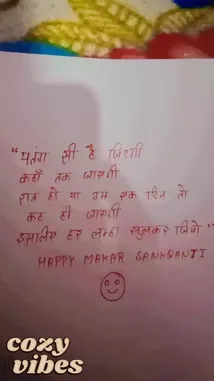 "पतंग सी है जिंदगी
कहाँ तक जाएगी
रात हो या उम्र एक दिन तो
कट ही जाएगी
इसलिए हर लम्हा खुलकर जियो"
HAPPY MAKAR SANKRANTI
cozy
vibes